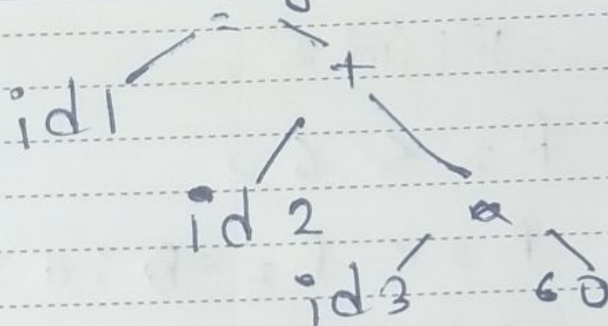 =
id1 +
id 2 *
id3 60